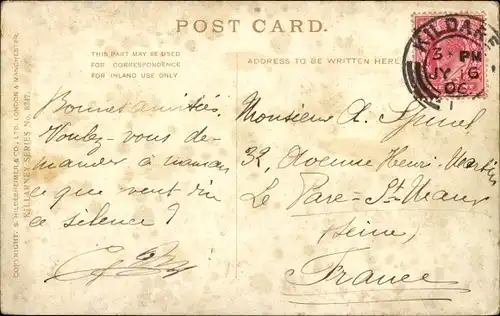 POST CARD.
THIS PART MAY BE USED
FOR CORRESPONDENCE
FOR INLAND USE ONLY
ADDRESS TO BE WRITTEN HERE
KILDARE
3 PM
JY 16
06
Bonnes amitiés.
Voulez-vous de-
mander à maman
ce que veut dire
ce silence?
Monsieur A.
32, Avenue Henri-Martin
Le Parc-St-Maur
(Seine)
France
COPYRIGHT. S. HILDESHEIMER & CO., LTD. LONDON & MANCHESTER.
KILLARNEY SERIES No.